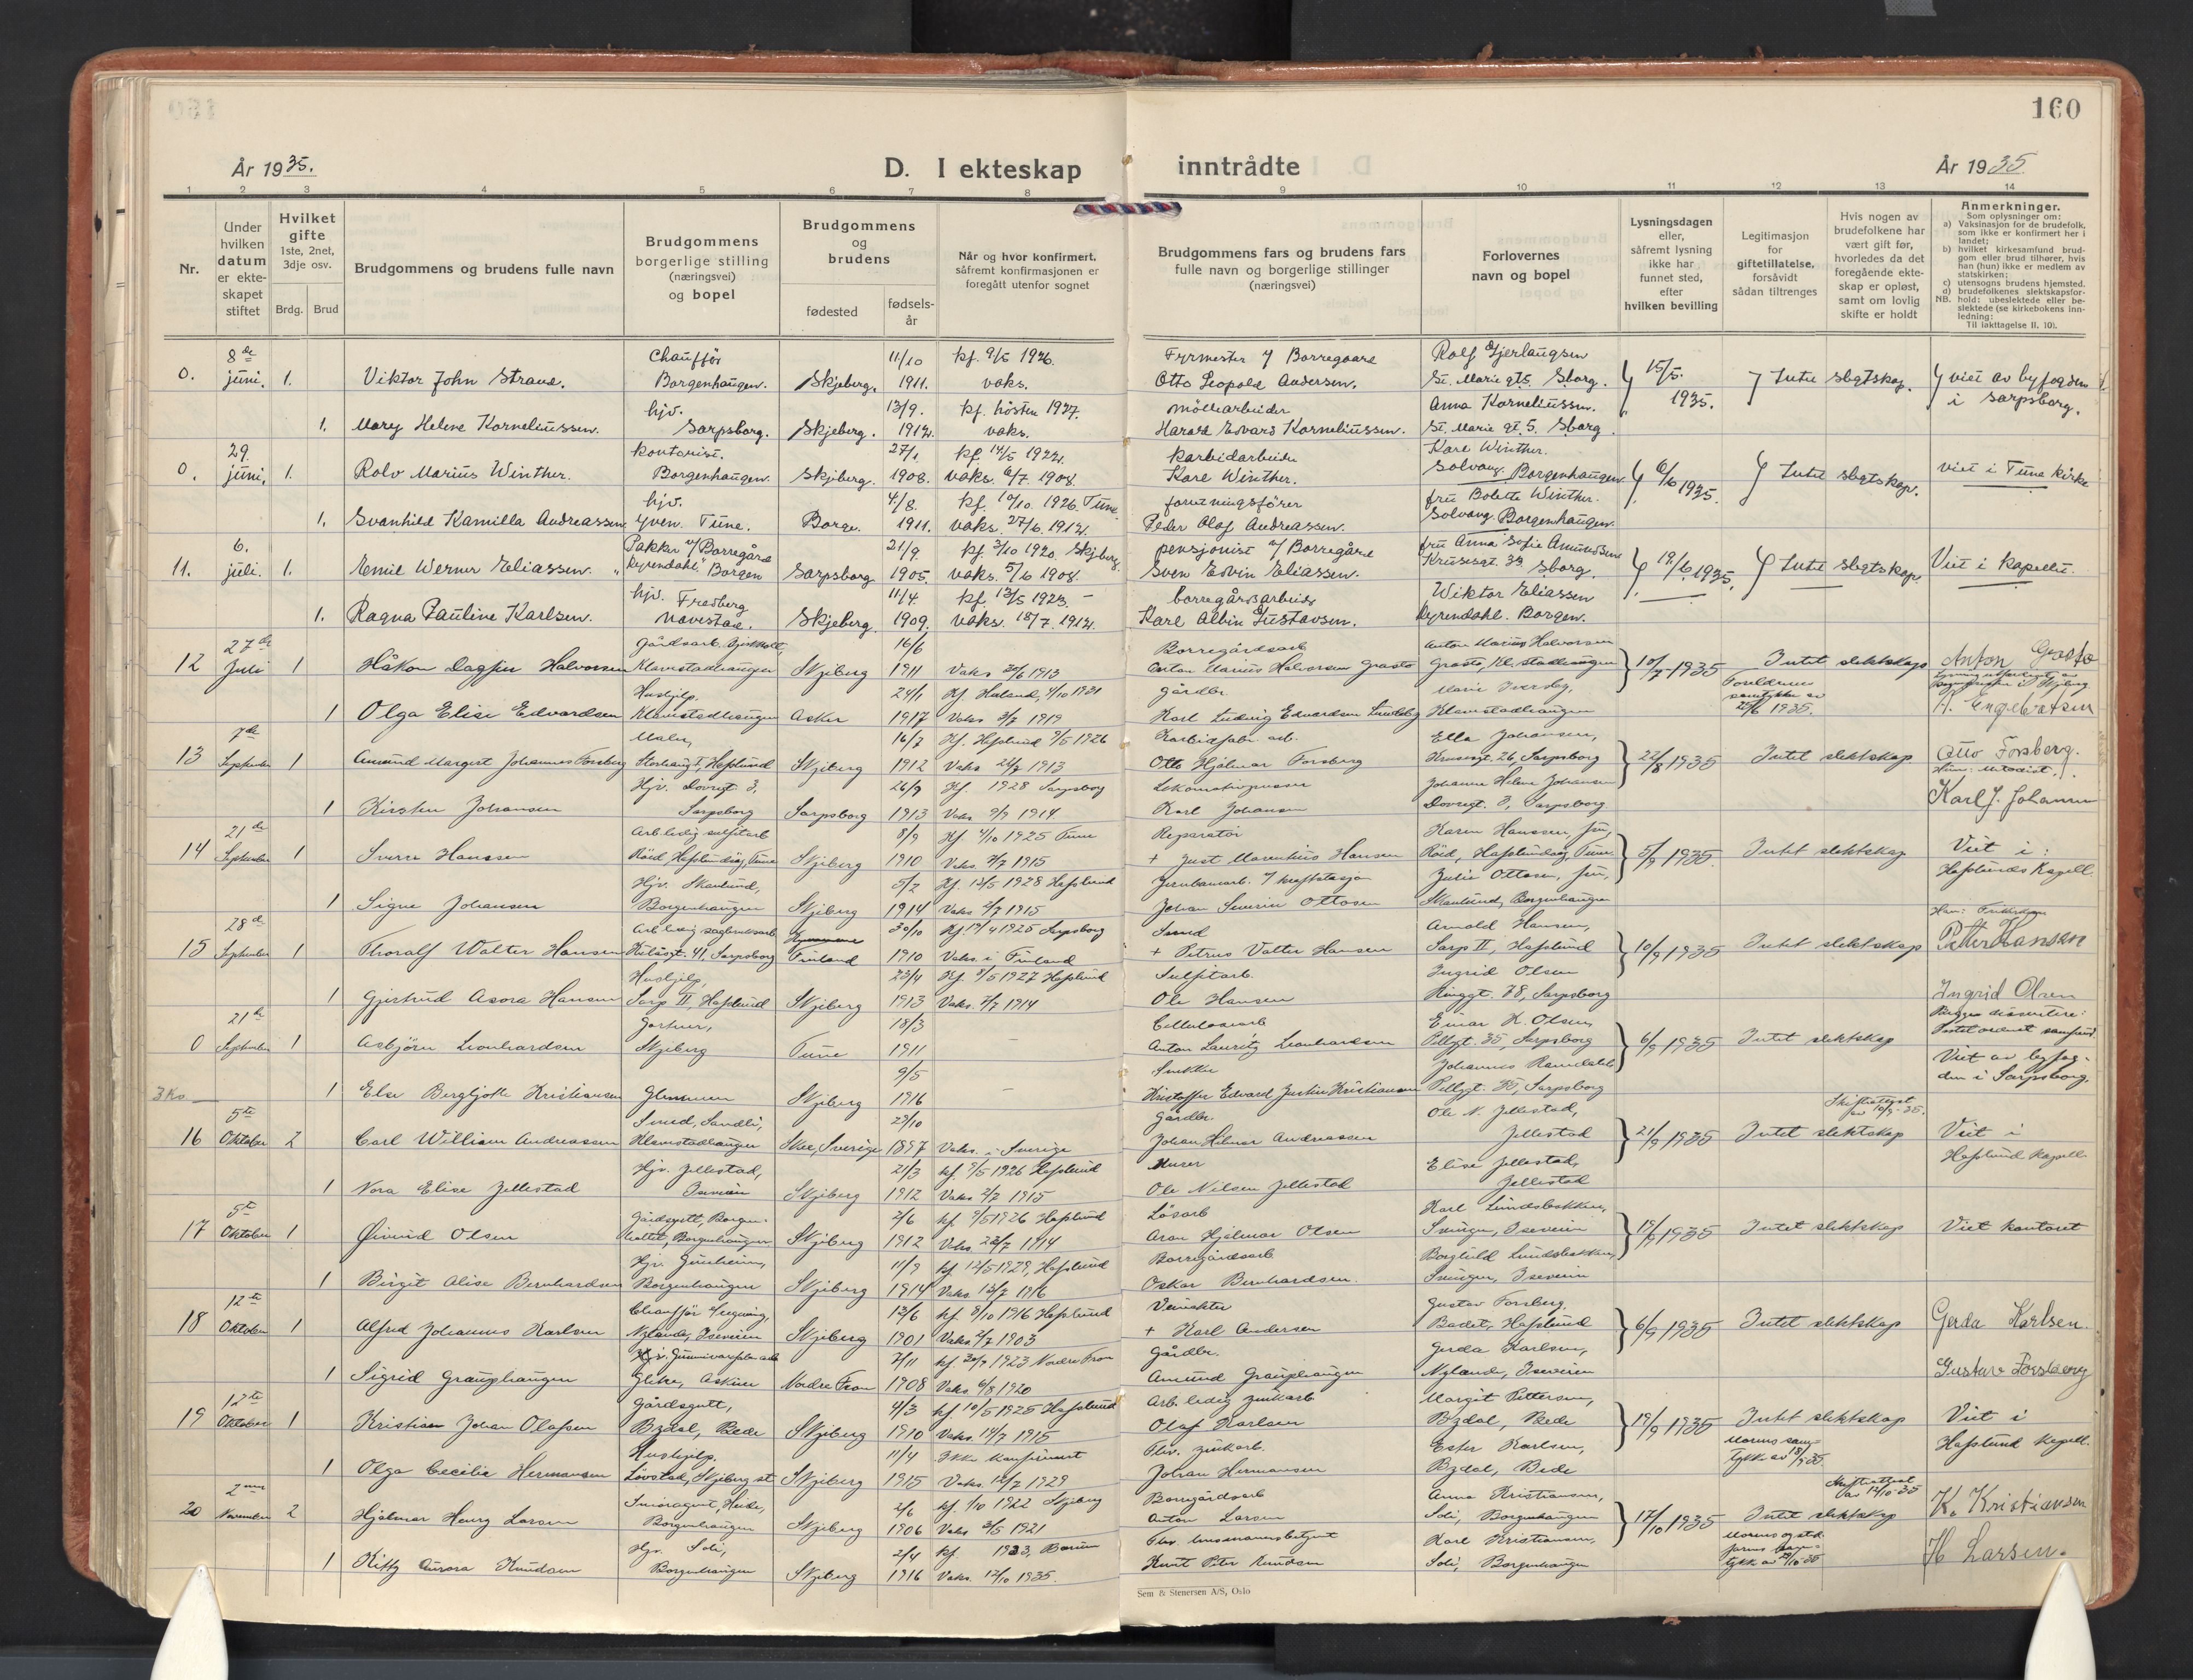 160
År 1935.
D. I ekteskap inntrådte
År 1935
1 2 3 4 5 6 7 8 9 10 11 12 13 14
Nr.
Under hvilken datum er ekteskapet stiftet
Hvilket gifte 1ste, 2net, 3dje osv.
Brdg. Brud
Brudgommens og brudens fulle navn
Brudgommens borgerlige stilling (næringsvei) og bopel
Brudgommens og brudens
fødested
fødselsår
Når og hvor konfirmert. såfremt konfirmasjonen er foregått utenfor sognet
Brudgommens fars og brudens fars fulle navn og borgerlige stillinger (næringsvei)
Forlovernes navn og bopel
Lysningsdagen eller, såfremt lysning ikke har funnet sted, efter hvilken bevilling
Legitimasjon for giftetillatelse, forsåvidt sådan tiltrenges
Hvis nogen av brudefolkene har vært gift før, hvorledes da det foregående ekteskap er opløst, samt om lovlig skifte er holdt
Anmerkninger.
Som oplysninger om:
a) Vaksinasjon for de brudefolk, som ikke er konfirmert her i landet;
b) hvilket kirkesamfund brudgom eller brud tilhører, hvis han (hun) ikke er medlem av statskirken;
c) utensogns brudens hjemsted.
d) brudefolkenes slektskapsforhold: ubeslektede eller beslektede (se kirkebokens innledning:
NB.
Til iakttagelse II. 10).
8de Chauffør 11/10 kf. 9/5 1926. Fyrmester v/ Borregaard Rolf Gjerlaugsen
0. juni. 1. Viktor John Strand. Borgenhaugen. Skjeberg. 1911. vaks. Otto Leopold Andersen. St. Marie gt 5. Sborg. 15/5. 1935. Intet slegtskap. viet av byfogden i Sarpsborg.
hjv. 13/9. kf. høsten 1927. møllearbeider Anna Korneliussen.
1. Mary Helene Korneliussen. Sarpsborg. Skjeberg. 1912. vaks. Harald Edvard Korneliussen. St. Marie gt. 5. Sborg
29. kontorist. 27/1 kf 14/5 1922. karbidarbeider Kare Winther.
0. juni, 1. Rolv Marius Winther. Borgenhaugen. Skjeberg. 1908. vaks. 6/7. 1908. Kare Winther. Solvang. Borgenhaugen 6/6 1935. Intet slegtskap. viet i Tune kirke
hjv. 4/8. kf. 10/10. 1926. Tune forretningsfører fru Bolette Winther.
1. Svanhild Kamilla Andreassen Yven. Tune. Borge. 1911. vaks. 27/6. 1912. Peder Olaf Andreassen. Solvang. Borgenhaugen.
6. Pakker v/ Borregård 21/9 kf. 3/10 1920. Skjeberg pensjonist v/ Borregård fru Anna Sofie Amundsen
11. juli. 1. Emil Werner Eliassen. "Lyrendahl" Borgen Sarpsborg 1905. vaks. 5/6 1908. Sven Edvin Eliassen. Krusesgt. 33. Sborg. 19/6. 1935. Intet slegtskap. Viet i kapellet.
hjv. Fredberg 11/4. kf. 13/5 1923. borregårdsarbeider Wiktor Eliassen
1. Ragna Pauline Karlsen. Navestad. Skjeberg. 1909. vaks. 18/7. 1912. Karl Albin Gustavsen. Lyrendahl. Borgen.
27de Gårdsarb. 16/6 Borregårdsarb Anton Marius Halvorsen
12 Juli 1 Håkon Dagfin Halvorsen Klavestadhaugen Skjeberg 1911 Vaks 20/6 1913 Anton Marius Halvorsen Grasto Grasto, Kl.stadhaugen 10/7-1935 Intet slektskap Anton Grasto
Hushjelp, 24/1 Kf. 4/10 1931 gårdbr. Foreldrenes samtykke av 25/6 1935.
1 Olga Elise Edvardsen Klavestadhaugen Asker 1917 Vaks 3/7 1919 Karl Ludvig Edvardsen Klavestadhaugen H. Engebretsen
7de Maler, 16/7 Kf. Hafslund 9/5 1926 Karbidfabr. arb. Ella Johansen,
13 September 1 Amund Margert Johannes Forsberg Storhaug I, Hafslund Skjeberg 1912 Vaks 24/7 1913 Otto Hjalmar Forsberg Krusesgt. 26, Sarpsborg 22/8 1935 Intet slektskap Otto Forsberg.
Hjv. Dovregt 3, 26/9 Kf. 1928 Sarpsborg Lokomotivpusser Johanne Helene Johansen
1 Kirsten Johansen Sarpsborg Sarpsborg 1913 Vaks 9/7 1914. Karl Johansen Dovregt. 3, Sarpsborg Karl J. Johansen
21de Arb.ledig sulfitarb 8/9 Kf. 4/10 1925 Tune Reparatør Karen Hanssen, fru,
14 September 1 Sverre Hanssen Röed, Hafslundsøy, Tune Skjeberg 1910 Vaks. 7/7 1915 + Just Marentius Hansen Röed, Hafslundsøy, Tune 5/9 1935. Intet slektskap Viet i: Hafslunds Kapell.
Hjv. Skanlund, 5/2 Kf. 13/5 1928 Hafslund Jernbanearb. v/ kraftstasjon Julie Ottosen, fru,
1 Signe Johansen Borgenhaugen Skjeberg 1914 Vaks 2/7 1915 Johan Severin Ottosen Skanlund, Borgenhaugen
28de Arb.ledig sagbruksarb 30/10 Kf. 19/4 1925 Sarpsborg Smed Arnold Hansen,
15 September 1 Thoralf Walter Hansen Kilåsgt. 41, Sarpsborg Finland 1910 Vaks. i Finland + Petrus Valter Hansen Sarp II, Hafslund 10/9 1935 Intet slektskap Petter Hansen
Hushjelp, 23/4 Kf. 8/5 1927 Hafslund Sulfitarb. Ingrid Olsen
1 Gjertrud Asora Hansen Sarp II, Hafslund Skjeberg 1913 Vaks. 7/7 1914 Ole Hansen Ringgt. 78, Sarpsborg Ingrid Olsen
21de Gartner, 18/3 Cellulosearb Einar K. Olsen,
0 September 1 Asbjørn Leonhardsen Skjeberg Tune 1911 – Anton Lauritz Leonhardsen Pellygt. 35, Sarpsborg 6/9 1935 Intet slektskap
9/5 Snekker Johannes
1 Else Bergljotte Kristiansen Glemmen Skjeberg 1916 – Kristoffer Edvard Justin Kristiansen Pellygt. 35, Sarpsborg Viet av byfogden i Sarpsborg.
3 Ko
5te Smed, Sandli, 29/10 Gårdbr. Ole N. Jellestad, Skifteattest av 10/9-35.
16 Oktober 2 Carl William Andreassen Klavestadhaugen Skee, Sverige 1897 Vaks. i Sverige Johan Hilmar Andreassen Jellestad 21/9 1935 Intet slektskap Viet i Hafslund kapell
Hjv. Jellestad, 21/3 kf. 9/5 1926 Hafslund Murer Elise Jellestad,
1 Nora Elise Jellestad Isevein Skjeberg 1912 Vaks 2/7 1915 Ole Nilsen Jellestad Jellestad
5te Gårdsgutt, Borgen- 2/6 kf 9/5 1926 Hafslund Løsarb Karl Lundsbakken,
17 Oktober 1 Øivind Olsen holtet, Borgenhaugen Skjeberg 1912 Vaks. 23/7 1914 Aron Hjalmar Olsen Svingen, Isevein 19/9 1935 Intet slektskap Viet kontoret
Hjv. 11/9 kf 12/5 1929, Hafslund Borregårdsarb Borghild Lundsbakken,
1 Birgit Alise Bernhardsen Borgenhaugen Skjeberg 1914 Vaks 13/7 1916 Oskar Bernhardsen. Svingen, Isevein
12te Chauffør 13/6 kf. 8/10 1916 Hafslund Veivokter Gustav Forsberg.
18 Oktober 1 Alfred Johannes Karlsen Nylande, Isevein Skjeberg 1901 Vaks. 2/7 1903 + Karl Andersen Badet, Hafslund 6/9 1935 Intet slektskap Gerda Karlsen.
Hjv. 7/11 kf. 30/9 1923 Nordre Fron Gårdbr. Gerda Karlsen,
1 Sigrid Grauphaugen Askim Nordre Fron 1908 Vaks 6/8 1920 Amund Grauphaugen Nylande, Isevein Gustav Forsberg
12te Gårdsgutt, 4/3 kf 10/5 1925 Hafslund Arb.ledig zinkarb Margit Pettersen,
19 Oktober 1 Kristian Johan Olafsen Bydal, Bede Skjeberg 1910 Vaks. 14/7 1915 Olaf Karlsen Bydal, Bede 19/9 1935 Intet slektskap Viet i Hafslund kapell.
Hushjelp. 11/4 Ikke konfirmert Flv. zinkarb. Ester Karlsen, Morens samtykke av 18/9 35
1 Olga Cecilie Hermansen Løvstad, Skjeberg st Skjeberg 1915 Vaks. 12/7 1929 Johan Hermansen Bydal, Bede
2nen 2/6 kf. 1/10 1922 Skjeberg Borregårdsarb Anna Kristiansen, Skifteattest av 14/10-35
20 November 2 Hjalmar Henry Larsen Borgenhaugen Skjeberg 1906 Vaks 3/5 1921 Anton Larsen Soli, Borgenhaugen 17/10 1935 Intet slektskap K. Kristiansen
Hjv. Soli, 2/4 kf. 1933, Bærum Karl Kristiansen,
1 Kitty Aurora Knudsen Borgenhaugen Skjeberg 1916 Vaks. 12/10 1935. Knut Peter Knudsen Soli, Borgenhaugen H Larsen.
Sem & Stenersen A/S, Oslo